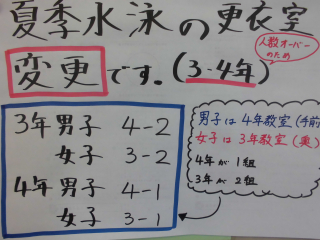 夏季水泳の更衣室
変更です。(3-4年)
人数オーバー
のため
3年 男子 4-2
女子 3-2
4年 男子 4-1
女子 3-1
男子は4年教室(手前)
女子は3年教室(奥)
4年が1組
3年が2組